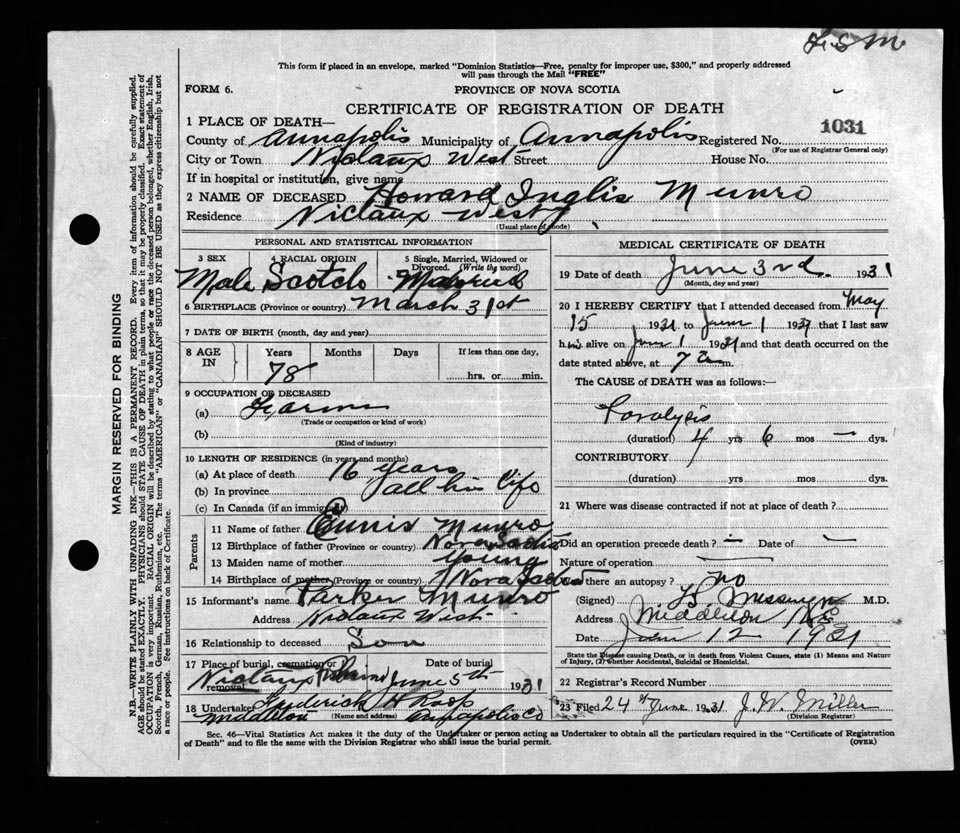 F S M
This form if placed in an envelope, marked "Dominion Statistics—Free, penalty for improper use, $300," and properly addressed
will pass through the Mail "FREE"
FORM 6.
PROVINCE OF NOVA SCOTIA
CERTIFICATE OF REGISTRATION OF DEATH
1 PLACE OF DEATH—
1031
County of Annapolis Municipality of Annapolis Registered No.
(For use of Registrar General only)
City or Town Niclaux West Street House No.
If in hospital or institution, give name
2 NAME OF DECEASED Howard Inglis Munro
Residence Niclaux West
(Usual place of abode)
PERSONAL AND STATISTICAL INFORMATION
3 SEX 4 RACIAL ORIGIN 5 Single, Married, Widowed or
Divorced. (Write the word)
Male Scotch Married
6 BIRTHPLACE (Province or country) March 31st
7 DATE OF BIRTH (month, day and year)
8 AGE IN Years Months Days If less than one day,
78 hrs. or min.
9 OCCUPATION OF DECEASED
(a) Farmer
(Trade or occupation or kind of work)
(b)
(Kind of industry)
10 LENGTH OF RESIDENCE (in years and months)
(a) At place of death 76 years
(b) In province all his life
(c) In Canada (if an immigrant)
Parents
11 Name of father Ennis Munro
12 Birthplace of father (Province or country) Nova Scotia
13 Maiden name of mother Young
14 Birthplace of mother (Province or country) Nova Scotia
15 Informant's name Parker Munro
Address Niclaux West
16 Relationship to deceased Son
17 Place of burial, cremation or removal Date of burial
Niclaux June 5th 1931
18 Undertaker Frederick H Roop
Middleton (Name and address) Annapolis Co
MEDICAL CERTIFICATE OF DEATH
19 Date of death June 3rd 1931
(Month, day and year)
20 I HEREBY CERTIFY that I attended deceased from May
15 1931 to June 1 1931 that I last saw
him alive on June 1 1931 and that death occurred on the
date stated above, at 7 am.
The CAUSE of DEATH was as follows:—
Paralysis
(duration) 4 yrs 6 mos — dys.
CONTRIBUTORY
(duration) yrs. mos. dys.
21 Where was disease contracted if not at place of death?
Did an operation precede death? — Date of —
Nature of operation —
Was there an autopsy? no
(Signed) Messenger M.D.
Address Middleton N.S.
Date June 12 1931
State the Disease causing Death, or in death from Violent Causes, state (1) Means and Nature
of Injury, (2) whether Accidental, Suicidal or Homicidal.
22 Registrar's Record Number
23 Filed 24th June 1931 J. W. Miller
(Division Registrar)
Sec. 46—Vital Statistics Act makes it the duty of the Undertaker or person acting as Undertaker to obtain all the particulars required in the "Certificate of Registration
of Death" and to file the same with the Division Registrar who shall issue the burial permit.
(OVER)
MARGIN RESERVED FOR BINDING
N.B.—WRITE PLAINLY WITH UNFADING INK—THIS IS A PERMANENT RECORD. Every item of information should be carefully supplied.
AGE should be stated EXACTLY. PHYSICIANS should STATE CAUSE OF DEATH in plain terms, so that it may be properly classified. Exact statement of
OCCUPATION is very important. RACIAL ORIGIN will be described by stating to what people or race the deceased person belonged, whether English, Irish,
Scotch, French, German, Russian, Ruthenian, etc. The terms "AMERICAN" or "CANADIAN" SHOULD NOT BE USED as they express citizenship but not
a race or people. See instructions on back of Certificate.